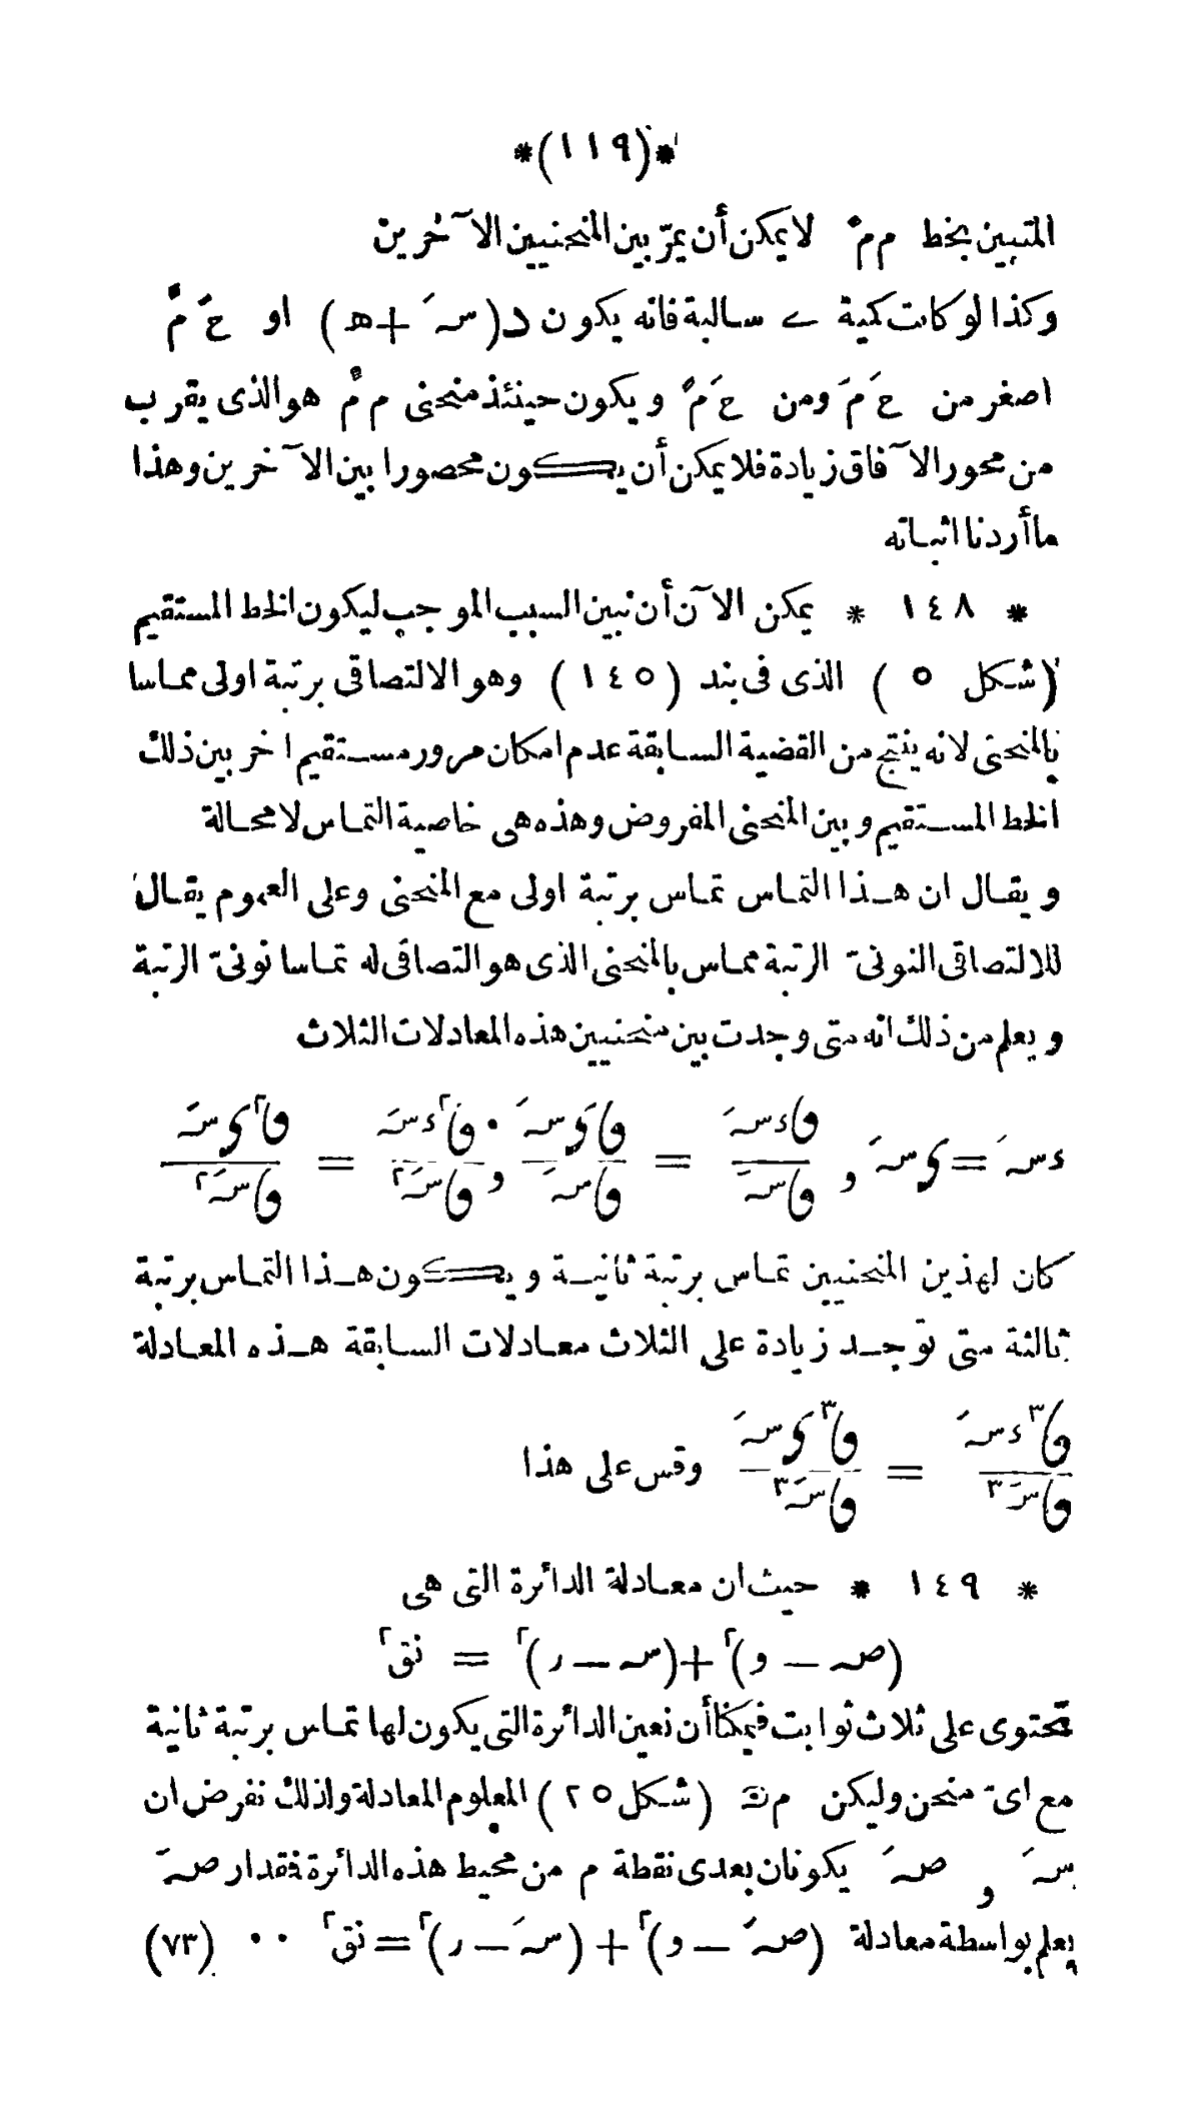 *(١١٩)*
المتبين بخط م م ً لا يمكن أن يمرّ بين المنحنيين الآخرين
وكذا لو كانت كمية ے سالبة فانه يكون د(سـَ + هـ) او حَ مً
اصغر من حَ مَ ومن حَ مً ويكون حينئذ منحنى م مً هو الذى يقرب
من محور الآفاق زيادة فلا يمكن أن يكون محصورا بين الآخرين وهذا
ما أردنا اثباته
* ١٤٨ * يمكن الآن أن نبين السبب الموجب ليكون الخط المستقيم
(شكل ٥) الذى فى بند (١٤٥) وهو الالتصاقى برتبة اولى مماسا
بالمنحنى لانه ينتج من القضية السابقة عدم امكان مرور مستقيم اخر بين ذلك
الخط المستقيم وبين المنحنى المفروض وهذه هى خاصية التماس لا محالة
ويقال ان هذا التماس تماس برتبة اولى مع المنحنى وعلى العموم يقال
للالتصاقى النونىّ الرتبة مماس بالمنحنى الذى هو التصاقى له تماسا نونىّ الرتبة
ويعلم من ذلك انه متى وجدت بين منحنيين هذه المعادلات الثلاث
ءسـَ = ىسـَ و \frac{فا ءسـَ}{فا سـَ} = \frac{فا ىسـَ}{فا سـَ} و \frac{فا٢ ءسـَ}{فا سـَ٢} = \frac{فا٢ ىسـَ}{فا سـَ٢}
كان لهذين المنحنيين تماس برتبة ثانية ويكون هذا التماس برتبة
ثالثة متى توجد زيادة على الثلاث معادلات السابقة هذه المعادلة
\frac{فا٣ ءسـَ}{فا سـَ٣} = \frac{فا٣ ىسـَ}{فا سـَ٣} وقس على هذا
* ١٤٩ * حيث ان معادلة الدائرة التى هى
(صـ – و)٢ + (سـ – ر)٢ = نق٢
تحتوى على ثلاث ثوابت فيمكننا أن نعين الدائرة التى يكون لها تماس برتبة ثانية
مع اىّ منحن وليكن م ن (شكل ٢٥) المعلوم المعادلة ولذلك نفرض ان
سـَ و صـَ يكونان بعدى نقطة م من محيط هذه الدائرة فمقدار صـَ
يعلم بواسطة معادلة (صـَ – و)٢ + (سـَ – ر)٢ = نق٢ ٠٠ (٧٣)